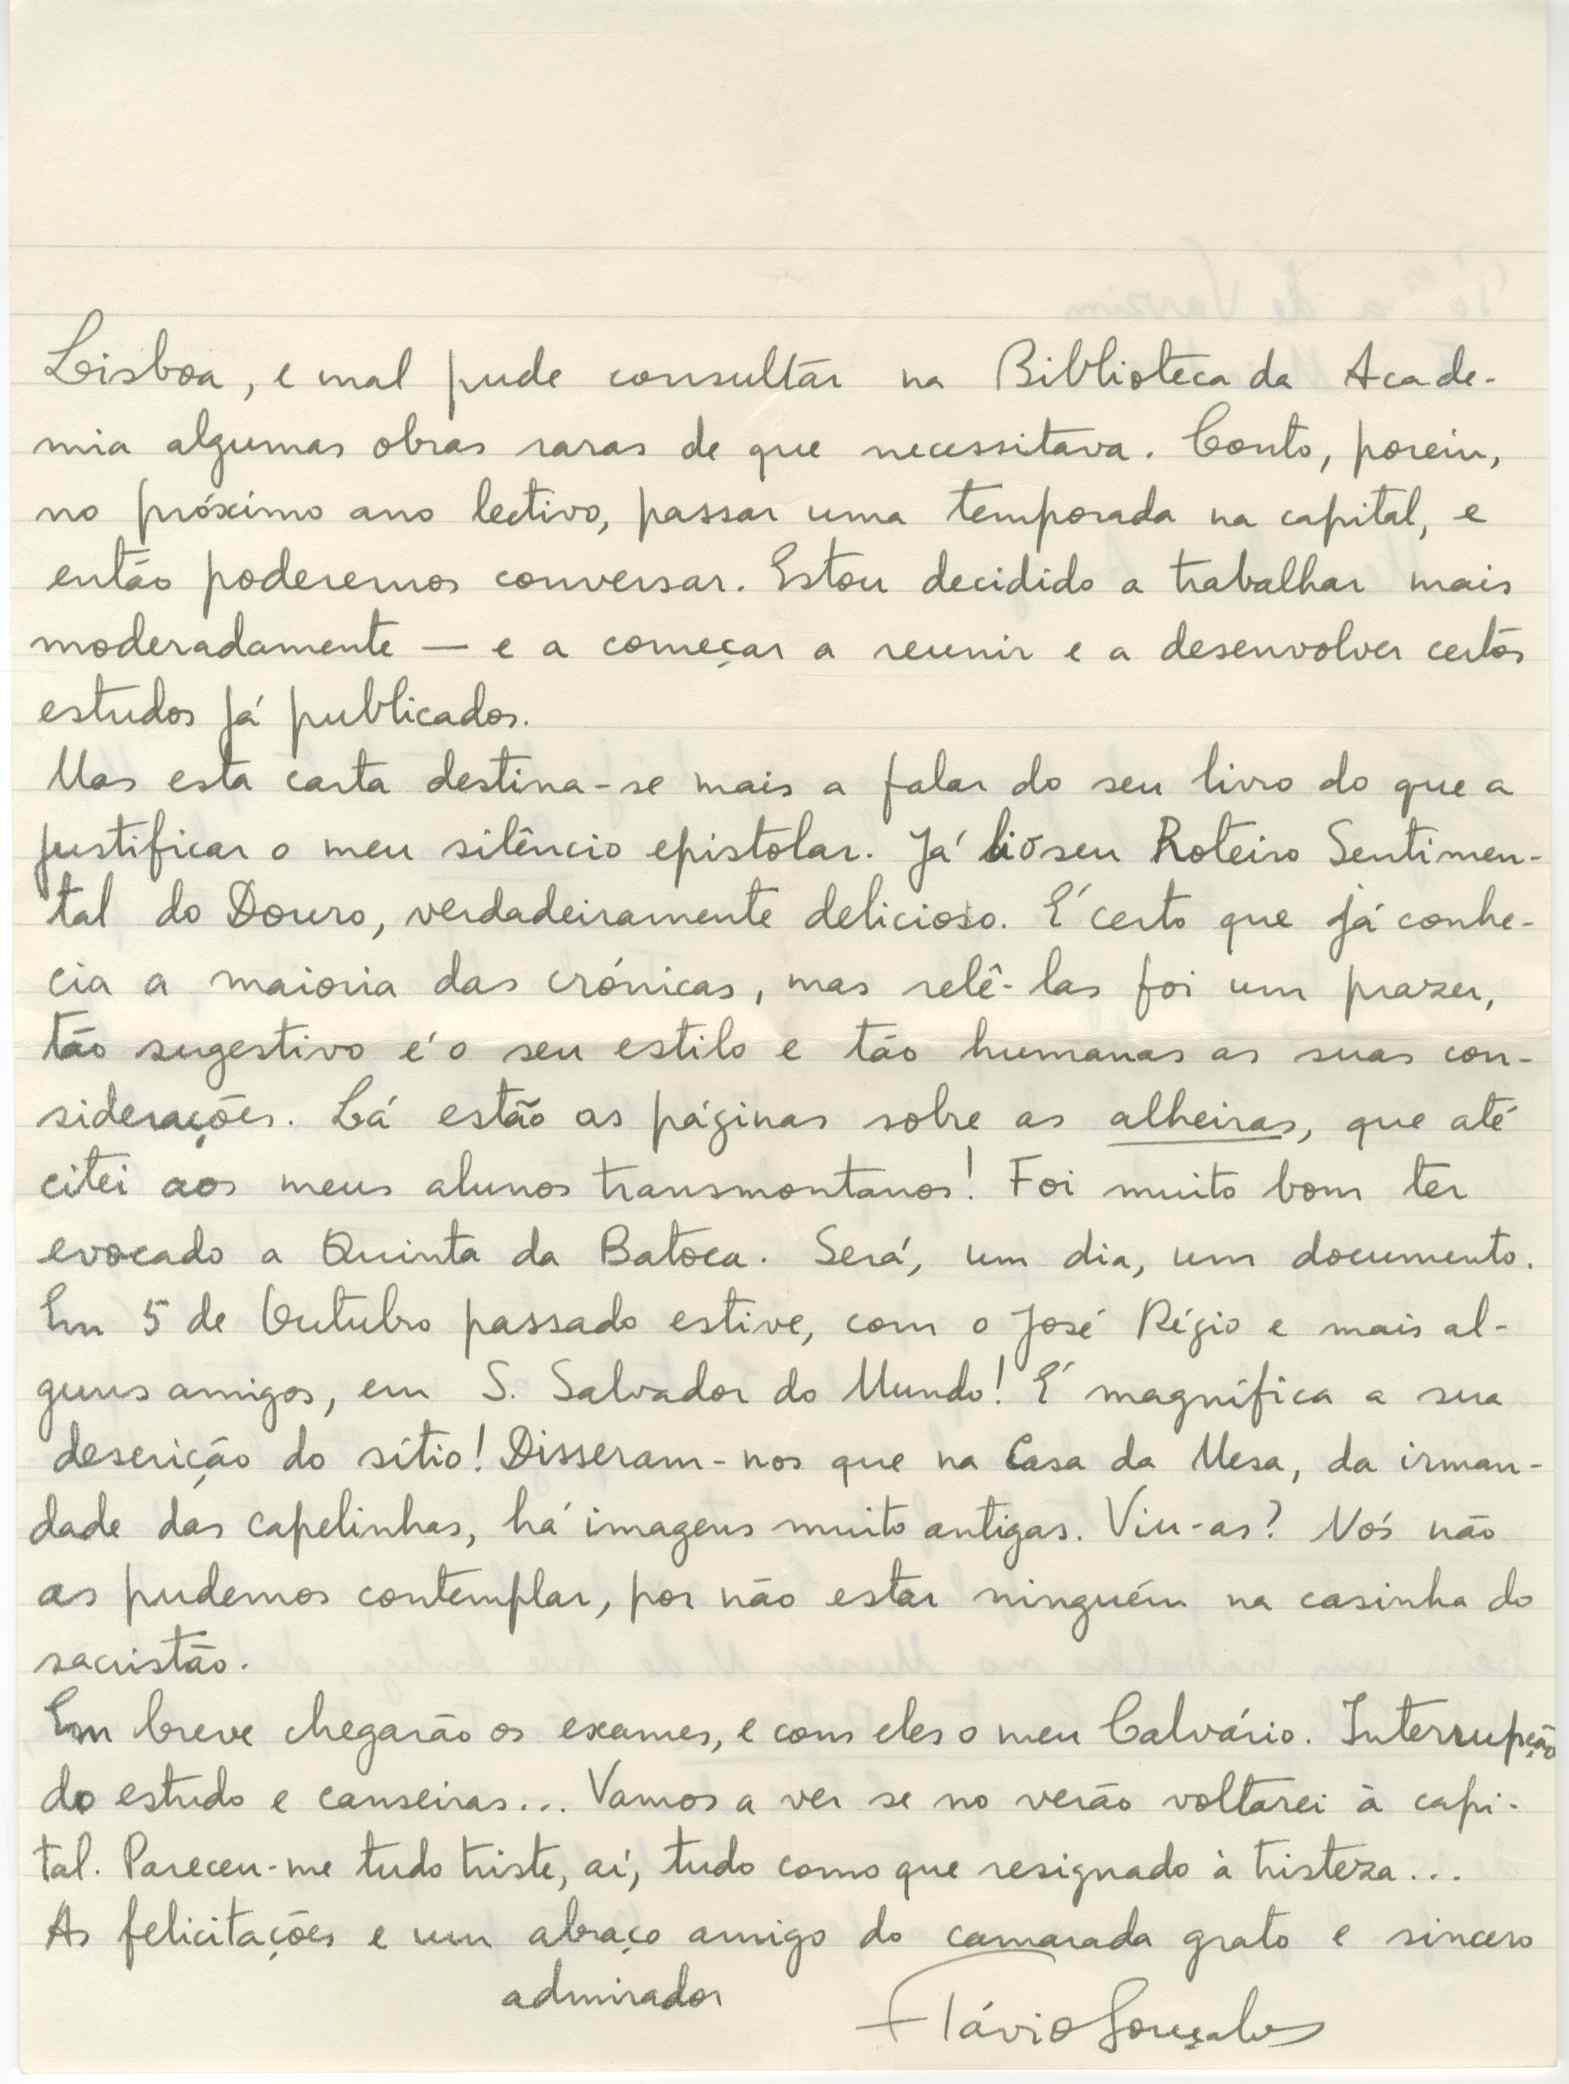 Lisboa, e mal pude consultar na Biblioteca da Acade-
mia algumas obras raras de que necessitava. Conto, porém,
no próximo ano lectivo, passar uma temporada na capital, e
então poderemos conversar. Estou decidido a trabalhar mais
moderadamente — e a começar a reunir e a desenvolver certos
estudos já publicados.
Mas esta carta destina-se mais a falar do seu livro do que a
justificar o meu silêncio epistolar. Já li o seu Roteiro Sentimen-
tal do Douro, verdadeiramente delicioso. É certo que já conhe-
cia a maioria das crónicas, mas relê-las foi um prazer,
tão sugestivo é o seu estilo e tão humanas as suas con-
siderações. Lá estão as páginas sobre as alheiras, que até
citei aos meus alunos transmontanos! Foi muito bom ter
evocado a Quinta da Batoca. Será, um dia, um documento.
Em 5 de Outubro passado estive, com o José Régio e mais al-
guns amigos, em S. Salvador do Mundo! É magnífica a sua
descrição do sítio! Disseram-nos que na Casa da Mesa, da irman-
dade das capelinhas, há imagens muito antigas. Viu-as? Nós não
as pudemos contemplar, por não estar ninguém na casinha do
sacristão.
Em breve chegarão os exames, e com eles o meu Calvário. Interrupção
do estudo e canseiras... Vamos a ver se no verão voltarei à capi-
tal. Pareceu-me tudo triste, aí, tudo como que resignado à tristeza...
As felicitações e um abraço amigo do camarada grato e sincero
admirador
Flávio Gonçalves